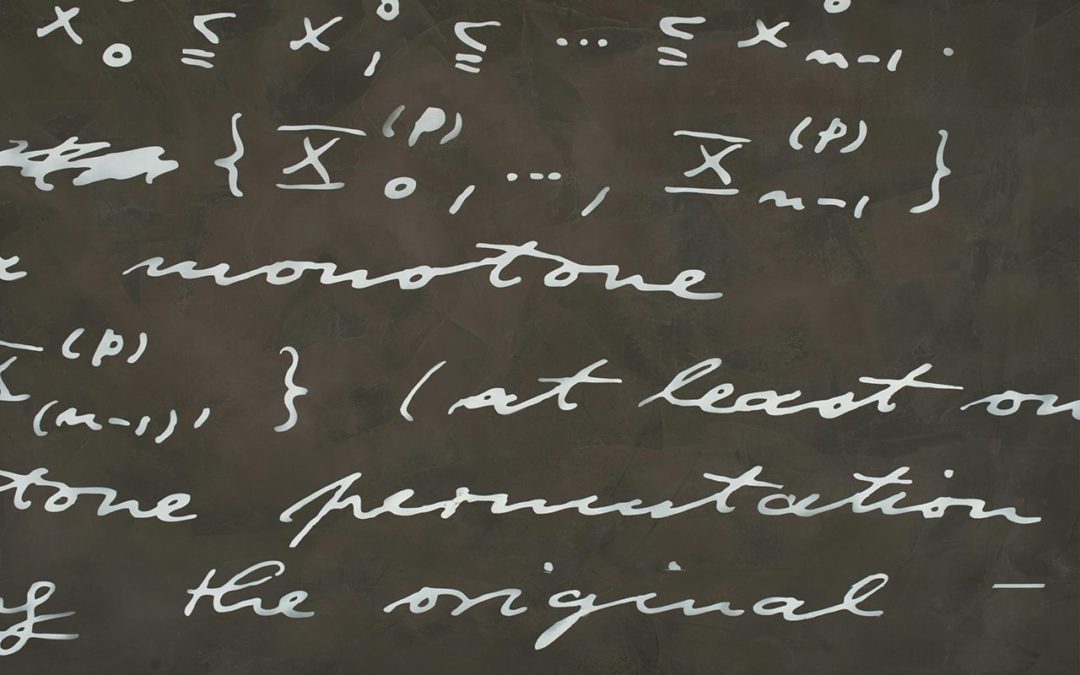 x₀° ≦ x₁° ≦ ... ≦ x°ₙ₋₁ .
{ X̅₀⁽ᵖ⁾, ..., X̅ₙ₋₁⁽ᵖ⁾ }
monotone
X̅₍ₙ₋₁₎,⁽ᵖ⁾ } (at least on
tone permutation
the original —